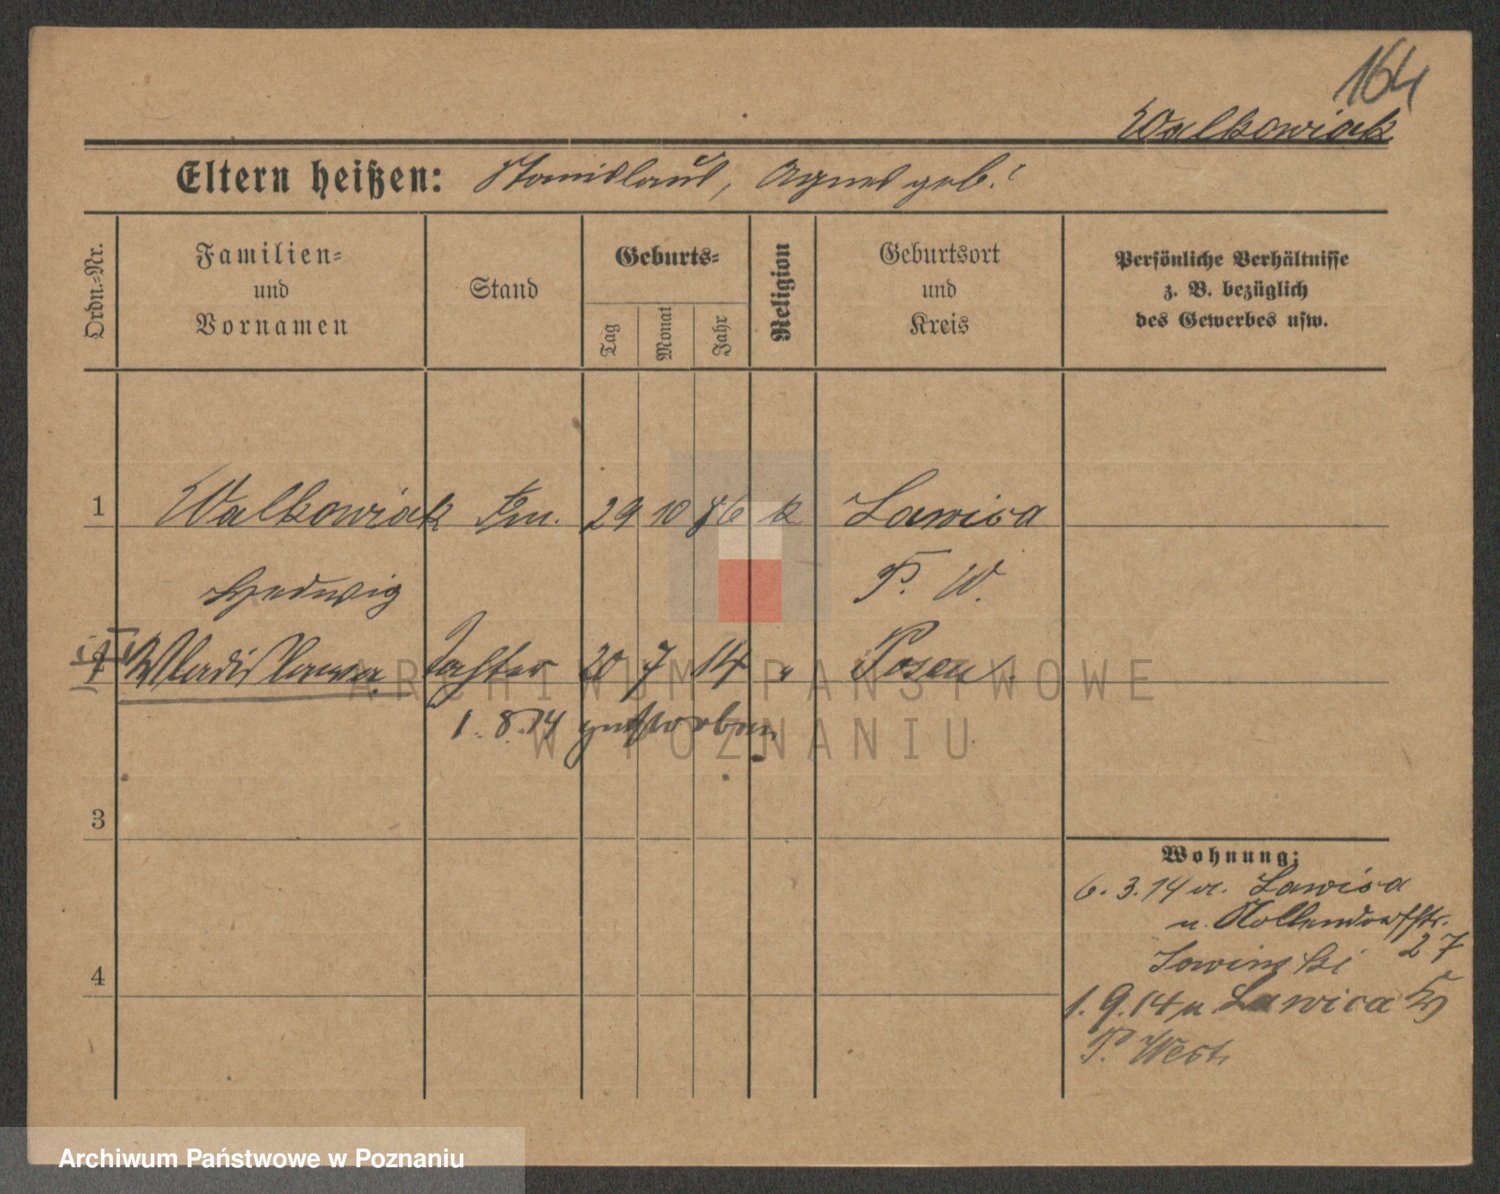 164
Walkowiak
Eltern heißen: Stanislaus, Agnes geb. ?
Ordn.-Nr.
Familien-
und
Vornamen
Stand
Geburts-
Tag
Monat
Jahr
Religion
Geburtsort
und
Kreis
Persönliche Verhältnisse
z. B. bezüglich
des Gewerbes usw.
1 Walkowiak 29 10 86 k Lawica
Hedwig P. W.
Wladislawa Tochter 20 7 14 " Posen
1. 8. 14 gestorben
3
4
Wohnung:
6. 3. 14 v. Lawica
n. Nollendorfstr.
27
1. 9. 14 n Lawica
P. West
ARCHIWUM PAŃSTWOWE
W POZNANIU
Archiwum Państwowe w Poznaniu